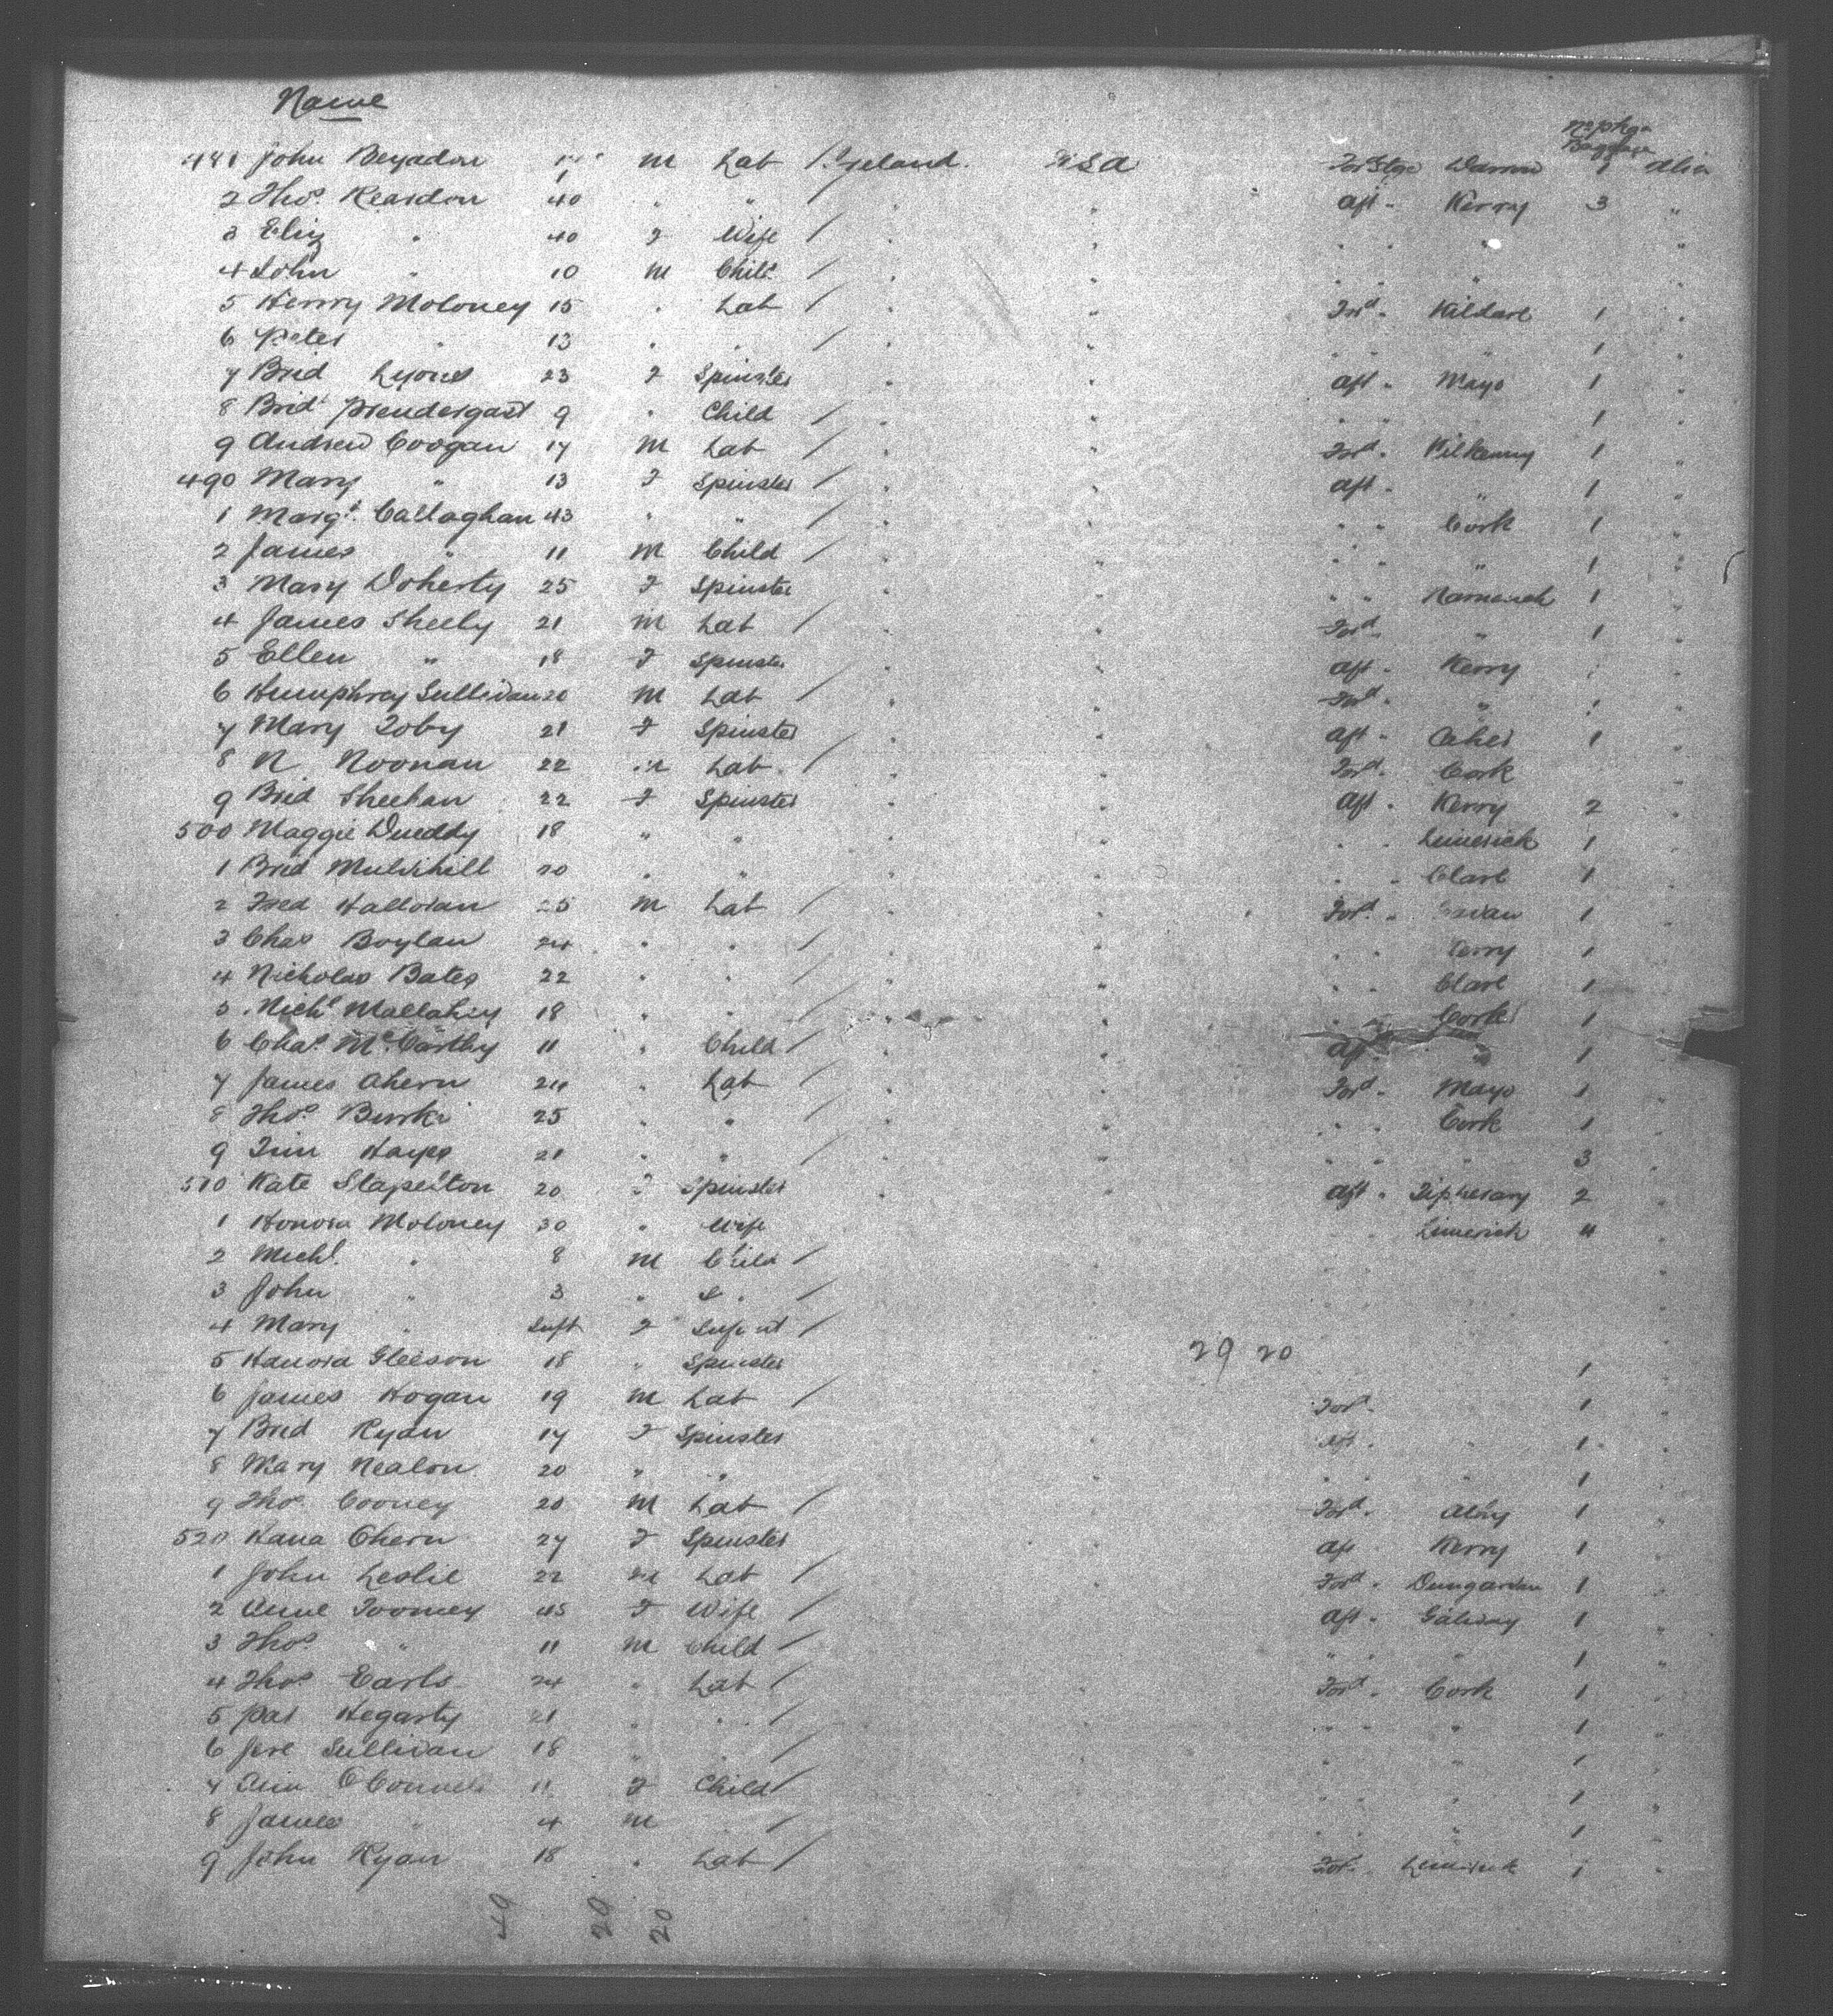 Name
No pkgs Baggage
481 John m Lab Ireland USA 1
2 Thos Reardon 40 " " / " " aft " Kerry 3 "
3 Eliz " 40 F Wife / " " " " " "
4 John " 10 m Child / " " " " "
5 Henry Moloney 15 " Lab / " " Ford " Kildare 1 "
6 Peter " 13 " " / " " " " " 1 "
7 Brid Lyons 23 F Spinster " " aft " Mayo 1 "
8 Brid Prendergast 9 " Child / " " " " " 1 "
9 Andrew Coogan 17 m Lab / " " Ford " Kilkenny 1 "
490 Mary " 13 F Spinster / " " aft " " 1 "
1 Margt Callaghan 43 " " / " " " " Cork 1 "
2 James " 11 m Child / " " " " " 1 "
3 Mary Doherty 25 F Spinster " " " " 1 "
4 James Sheely 21 m Lab / " " Ford " " 1 "
5 Ellen " 18 F Spinster " " aft " Kerry "
6 Humphrey Sullivan 20 m Lab / " " Ford " " "
7 Mary Toby 21 F Spinster / " " aft " Caher 1 "
8 N Noonan 22 m Lab / " " Ford " Cork "
9 Brid Sheehan 22 F Spinster " " aft " Kerry 2 "
500 Maggie 18 " " " " " " Limerick 1 "
1 Brid Mulvihill 20 " " " " " " Clare 1 "
2 Fred Halloran 25 m Lab / " " Ford " 1 "
3 Chas Boylan 24 " " / " " " " Kerry 1 "
4 Nicholas Bates 22 " " / " " " " Clare 1
5 Michl 18 " " / " " " " Cork 1
6 Chas McCarthy 11 " Child / " " aft " 1
7 James Ahern 24 " Lab / " " Ford " Mayo 1 "
8 Thos Burke 25 " " / " " " " Cork 1 "
9 Tim Hayes 21 " " / " " " " " 3 "
510 Kate Stapelton 20 F Spinster " aft " Tipperary 2 "
1 Honora Moloney 30 " Wife " " Limerick 4 "
2 Michl " 8 m Child / "
3 John " 3 " " / "
4 Mary " Inft F Infant / "
29 20
5 Hanora Gleeson 18 " Spinster 1 "
6 James Hogan 19 m Lab / Ford " 1 "
7 Brid Ryan 17 F Spinster " aft " " 1 "
8 Mary Nealon 20 " " " " " " 1 "
9 Thos Cooney 20 m Lab / Ford " 1 "
520 Hana Ohern 27 F Spinster aft Kerry 1 "
1 John Leslie 22 m Lab / Ford " Dungarvan 1 "
2 Anne Toomey 45 F Wife / aft " Galway 1 "
3 Thos " 11 m Child / " " " 1 "
4 Thos Earls 24 " Lab / Ford " Cork 1 "
5 Pat Hegarty 21 " " / " " " 1 "
6 Jere Sullivan 18 " " / " " 1 "
7 Ann O'Connell 11 F Child / " " " 1 "
8 James " 4 m " / " " " 1 "
9 John Ryan 18 " Lab / Ford " Limerick 1 "
49 20 20